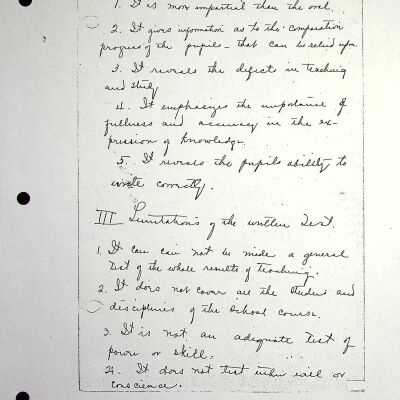 1. It is more impartial than the oral.
2. It gives information as to the comparative
progress of the pupils - that can be relied upon.
3. It reveals the defects in teaching
and study
4. It emphasizes the importance of
fullness and accuracy in the ex-
pression of knowledge.
5. It reveals the pupils ability to
write correctly.
III Limitations of the written Test.
1. It can can not be made a general
test of the whole results of teaching.
2. It does not cover all the studies and
disciplines of the school course.
3. It is not an adequate test of
power or skill.
4. It does not test either will or
conscience.